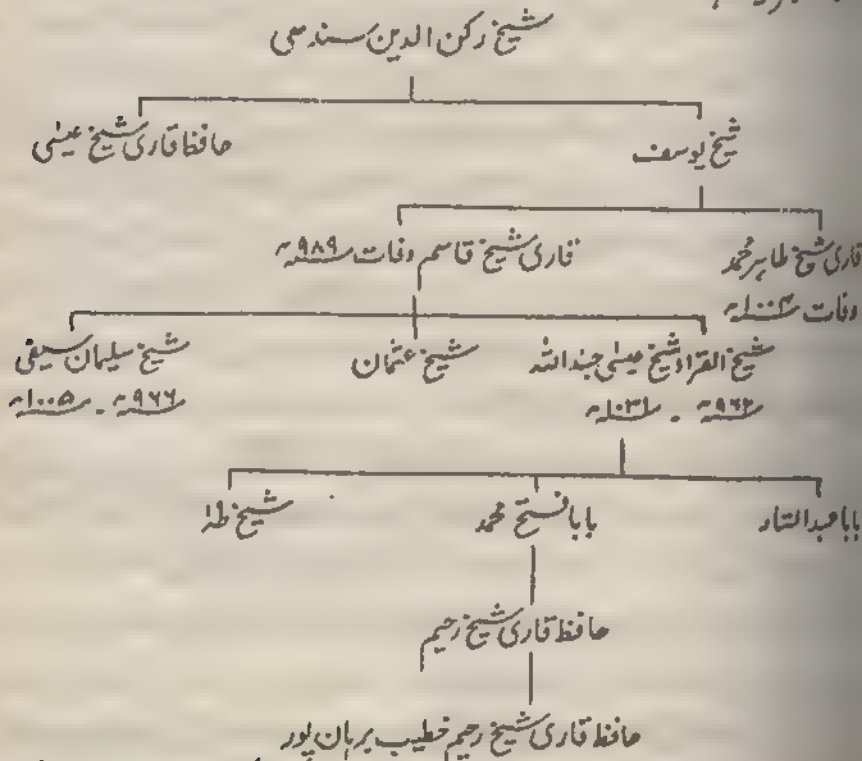 شیخ رکن الدین سندھی
شیخ یوسف حافظ قاری شیخ عیسٰی
قاری شیخ طاہر محمد قاری شیخ قاسم وفات ۹۸۹ھ
وفات ۱۰۰۴ھ
شیخ القراء شیخ عیسٰی جنداللہ شیخ عثمان شیخ سلیمان سیفی
۹۶۲ھ ۔ ۱۰۳۱ھ ۹۶۶ھ ۔ ۱۰۰۵ھ
بابا عبدالستار بابا فتح محمد شیخ طٰہٰ
حافظ قاری شیخ رحیم
حافظ قاری شیخ رحیم خطیب برہان پور